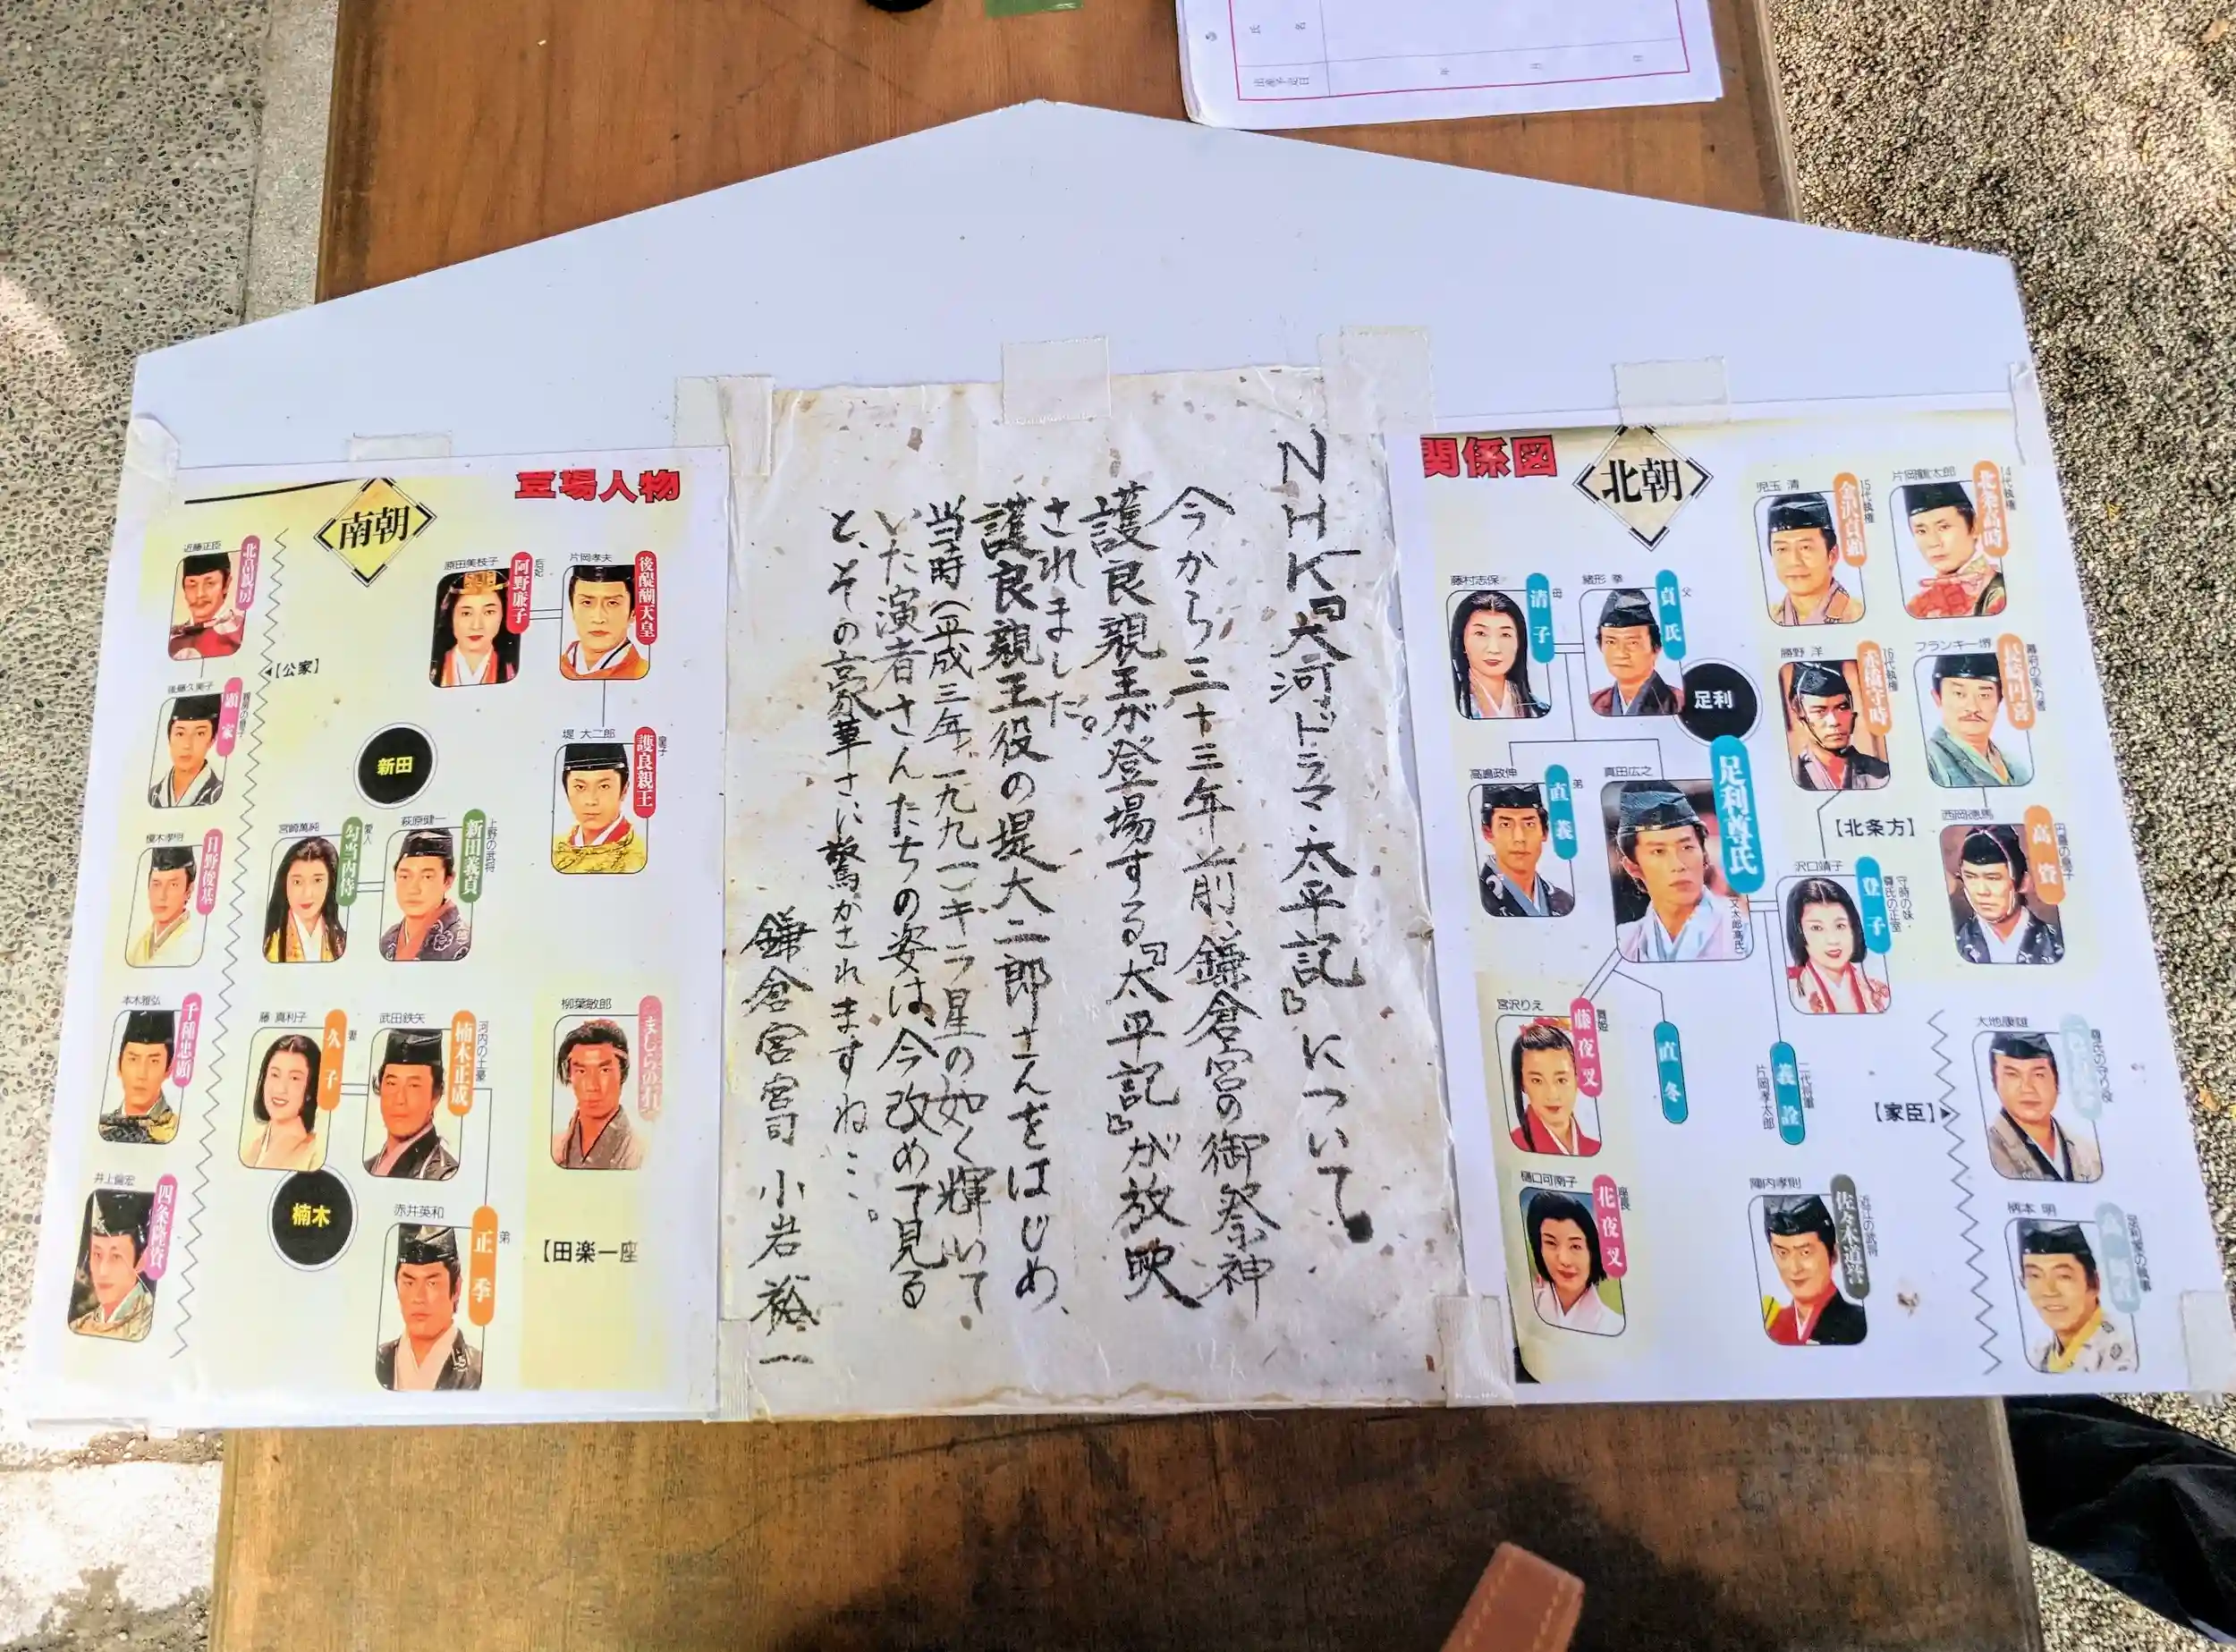 氏 名
年 月 日
NHK『大河ドラマ・太平記』について
今から三十三年前、鎌倉宮の御祭神
護良親王が登場する『太平記』が放映
されました。
護良親王役の堤大二郎さんをはじめ、
当時(平成三年、一九九一)キラ星の如く輝いて
いた演者さんたちの姿は、今改めて見る
と、その豪華さに驚かされますね…。
鎌倉宮宮司 小岩裕一
登場人物
南朝
近藤正臣
北畠親房
原田美枝子
阿野廉子
后妃
片岡孝夫
後醍醐天皇
【公家】
後藤久美子
顕家
堤 大二郎
護良親王
皇子
新田
榎木孝明
日野俊基
宮崎萬純
勾当内侍
愛人
萩原健一
新田義貞
上野の武将
本木雅弘
千種忠顕
藤 真利子
久子
妻
武田鉄矢
楠木正成
河内の土豪
柳葉敏郎
ましらの石
井上倫宏
四条隆資
楠木
赤井英和
正季
弟
【田楽一座
関係図
北朝
児玉 清
金沢貞顕
15代執権
片岡鶴太郎
北条高時
14代執権
藤村志保
清子
母
緒形 拳
貞氏
父
足利
勝野 洋
赤橋守時
16代執権
フランキー堺
長崎円喜
幕府の実力者
高嶋政伸
直義
弟
真田広之
足利尊氏
又太郎高氏
【北条方】
西岡德馬
高資
円喜の息子
沢口靖子
登子
守時の妹・
尊氏の正室
宮沢りえ
藤夜叉
直冬
義詮
二代将軍
片岡孝太郎
【家臣】
大地康雄
尊氏の守り役
樋口可南子
花夜叉
座長
陣内孝則
佐々木道誉
近江の武将
柄本 明
足利家の執事